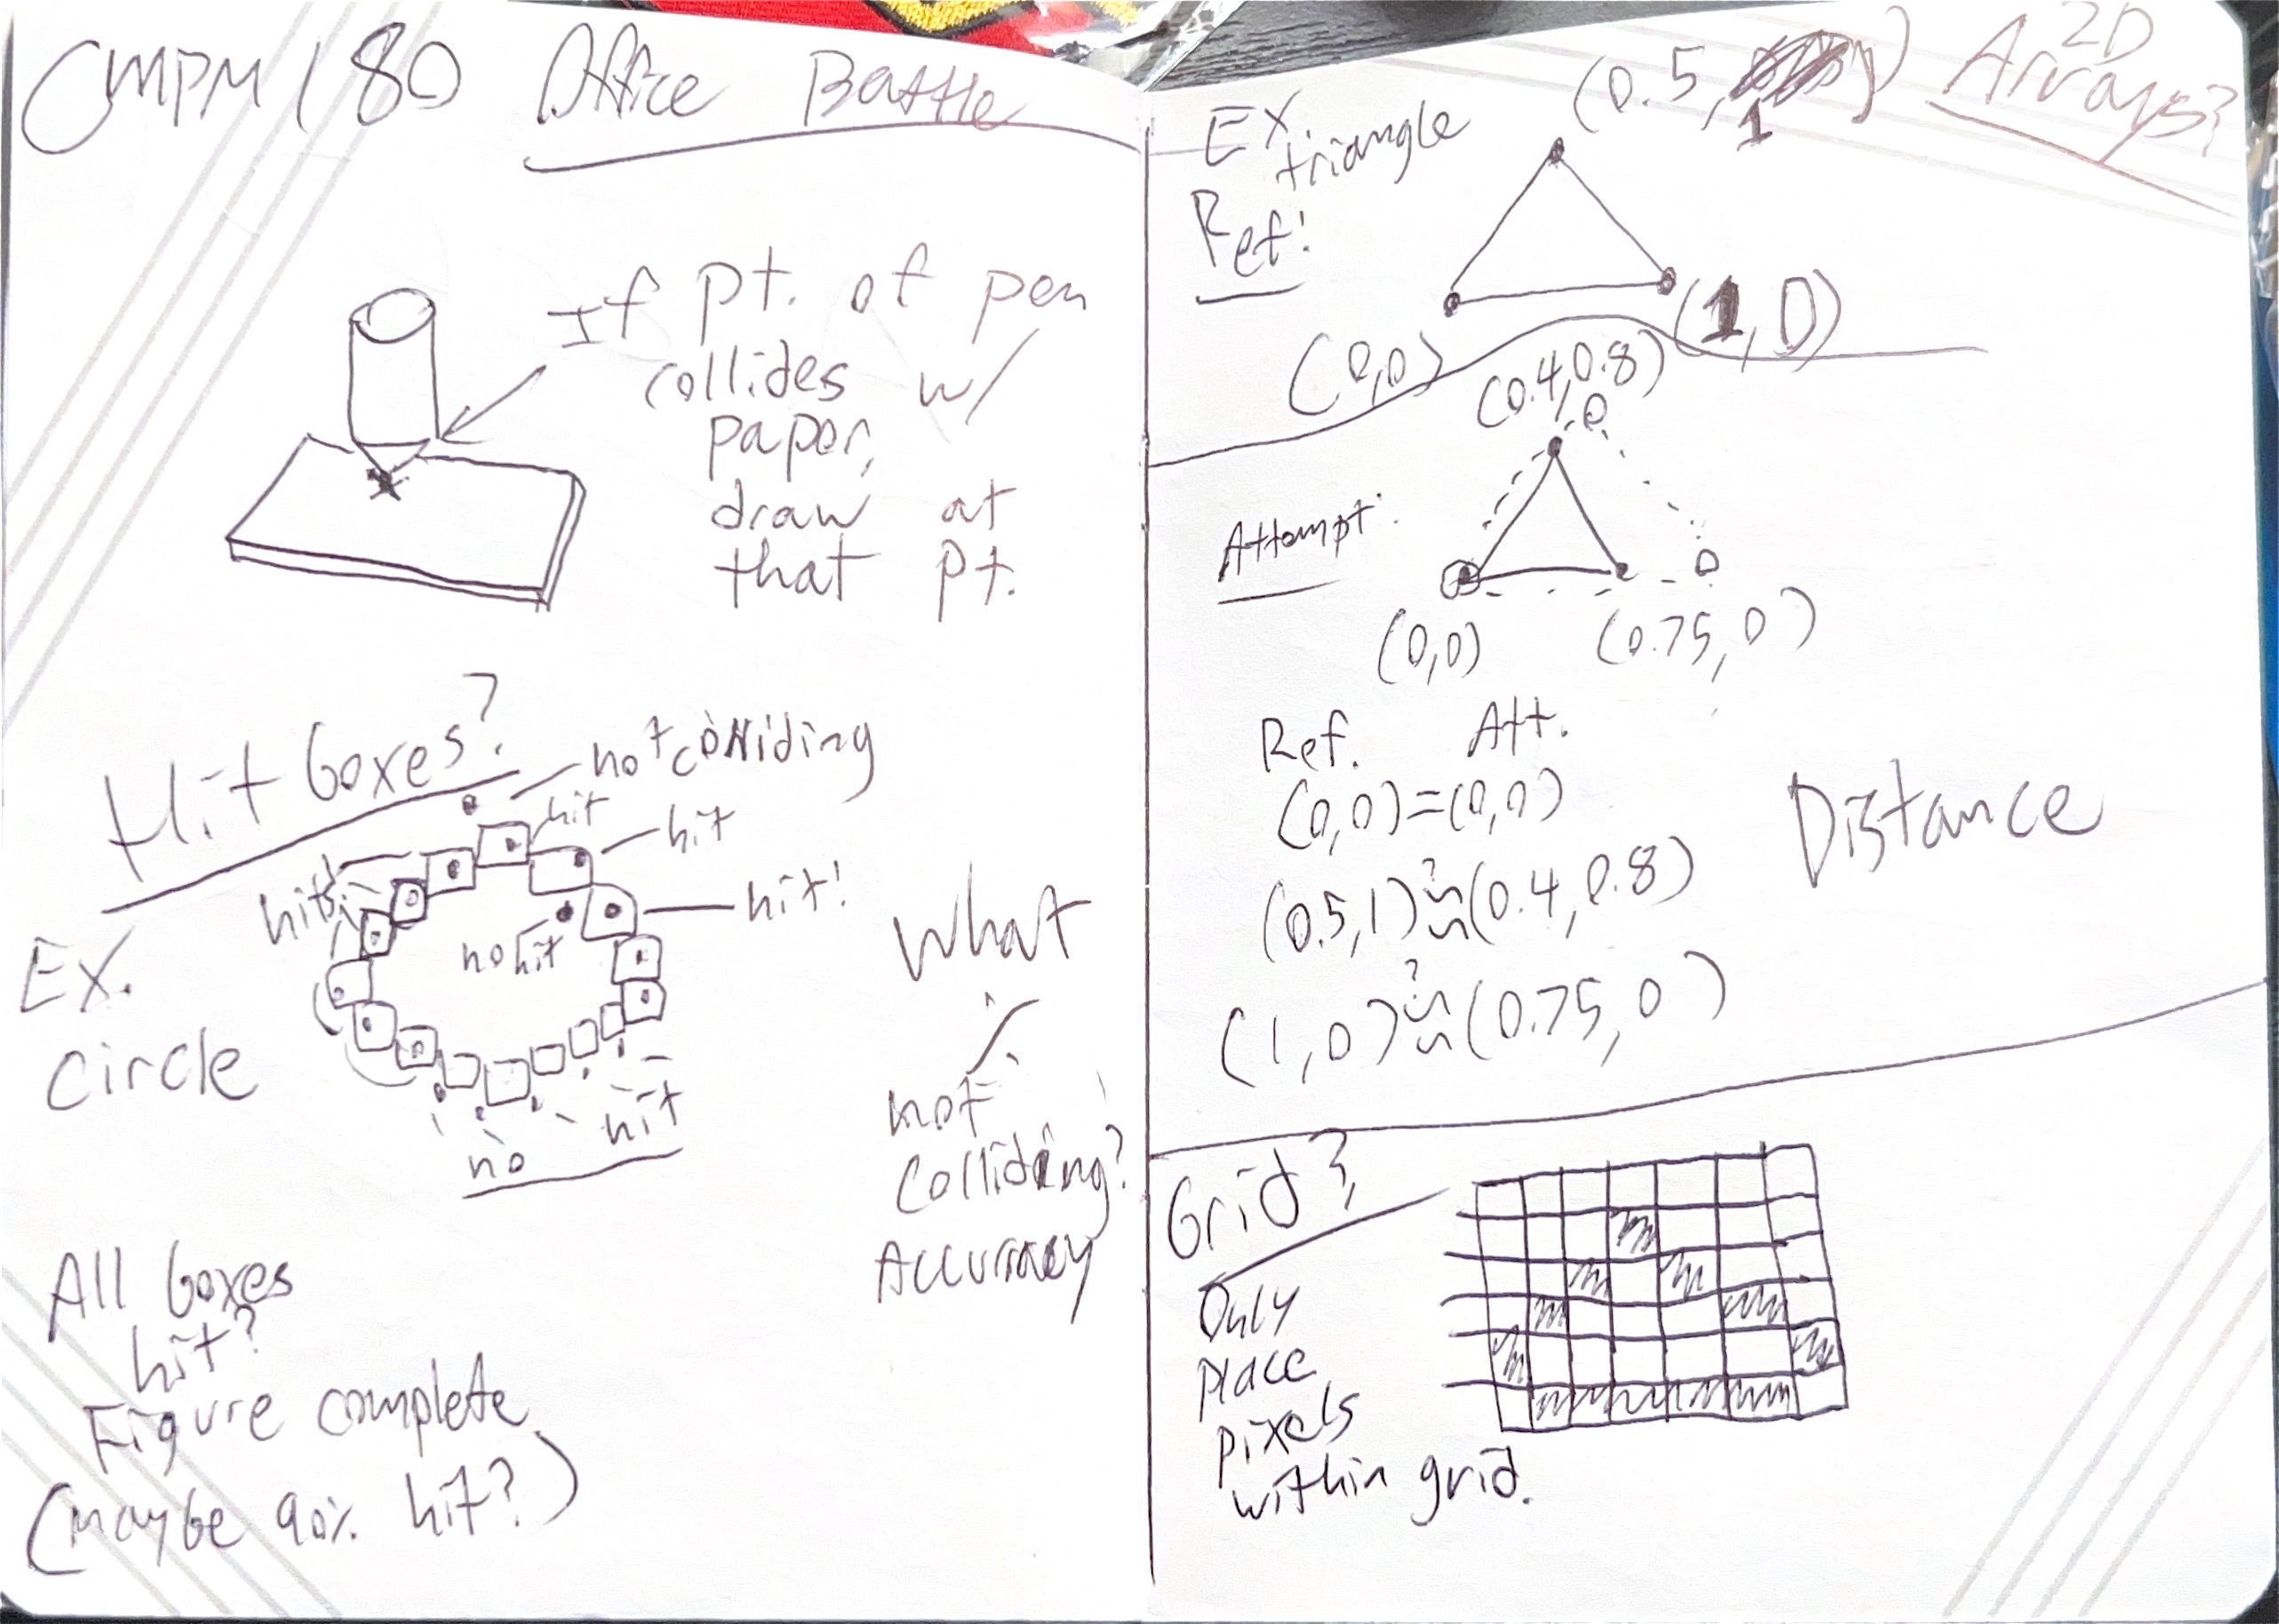 CMPM 180 Office Battle
If pt. of pen
collides w/
paper,
draw at
that pt.
Hit boxes?
not colliding
hit
hit
hits
hit!
no hit
EX.
circle
no hit
What
not
colliding?
Accuracy
All boxes
hit?
Figure complete
(maybe 90% hit?)
2D
Arrays?
EX.
triangle
Ref:
(0.5, 1)
(0,0)
(1,0)
(0.4,0.8)
Attempt:
(0,0)
(0.75,0)
Ref. Att.
(0,0)=(0,0)
(0.5,1)≈?(0.4,0.8)
(1,0)≈?(0.75,0)
Distance
Grid?
Only
place
pixels
within grid.